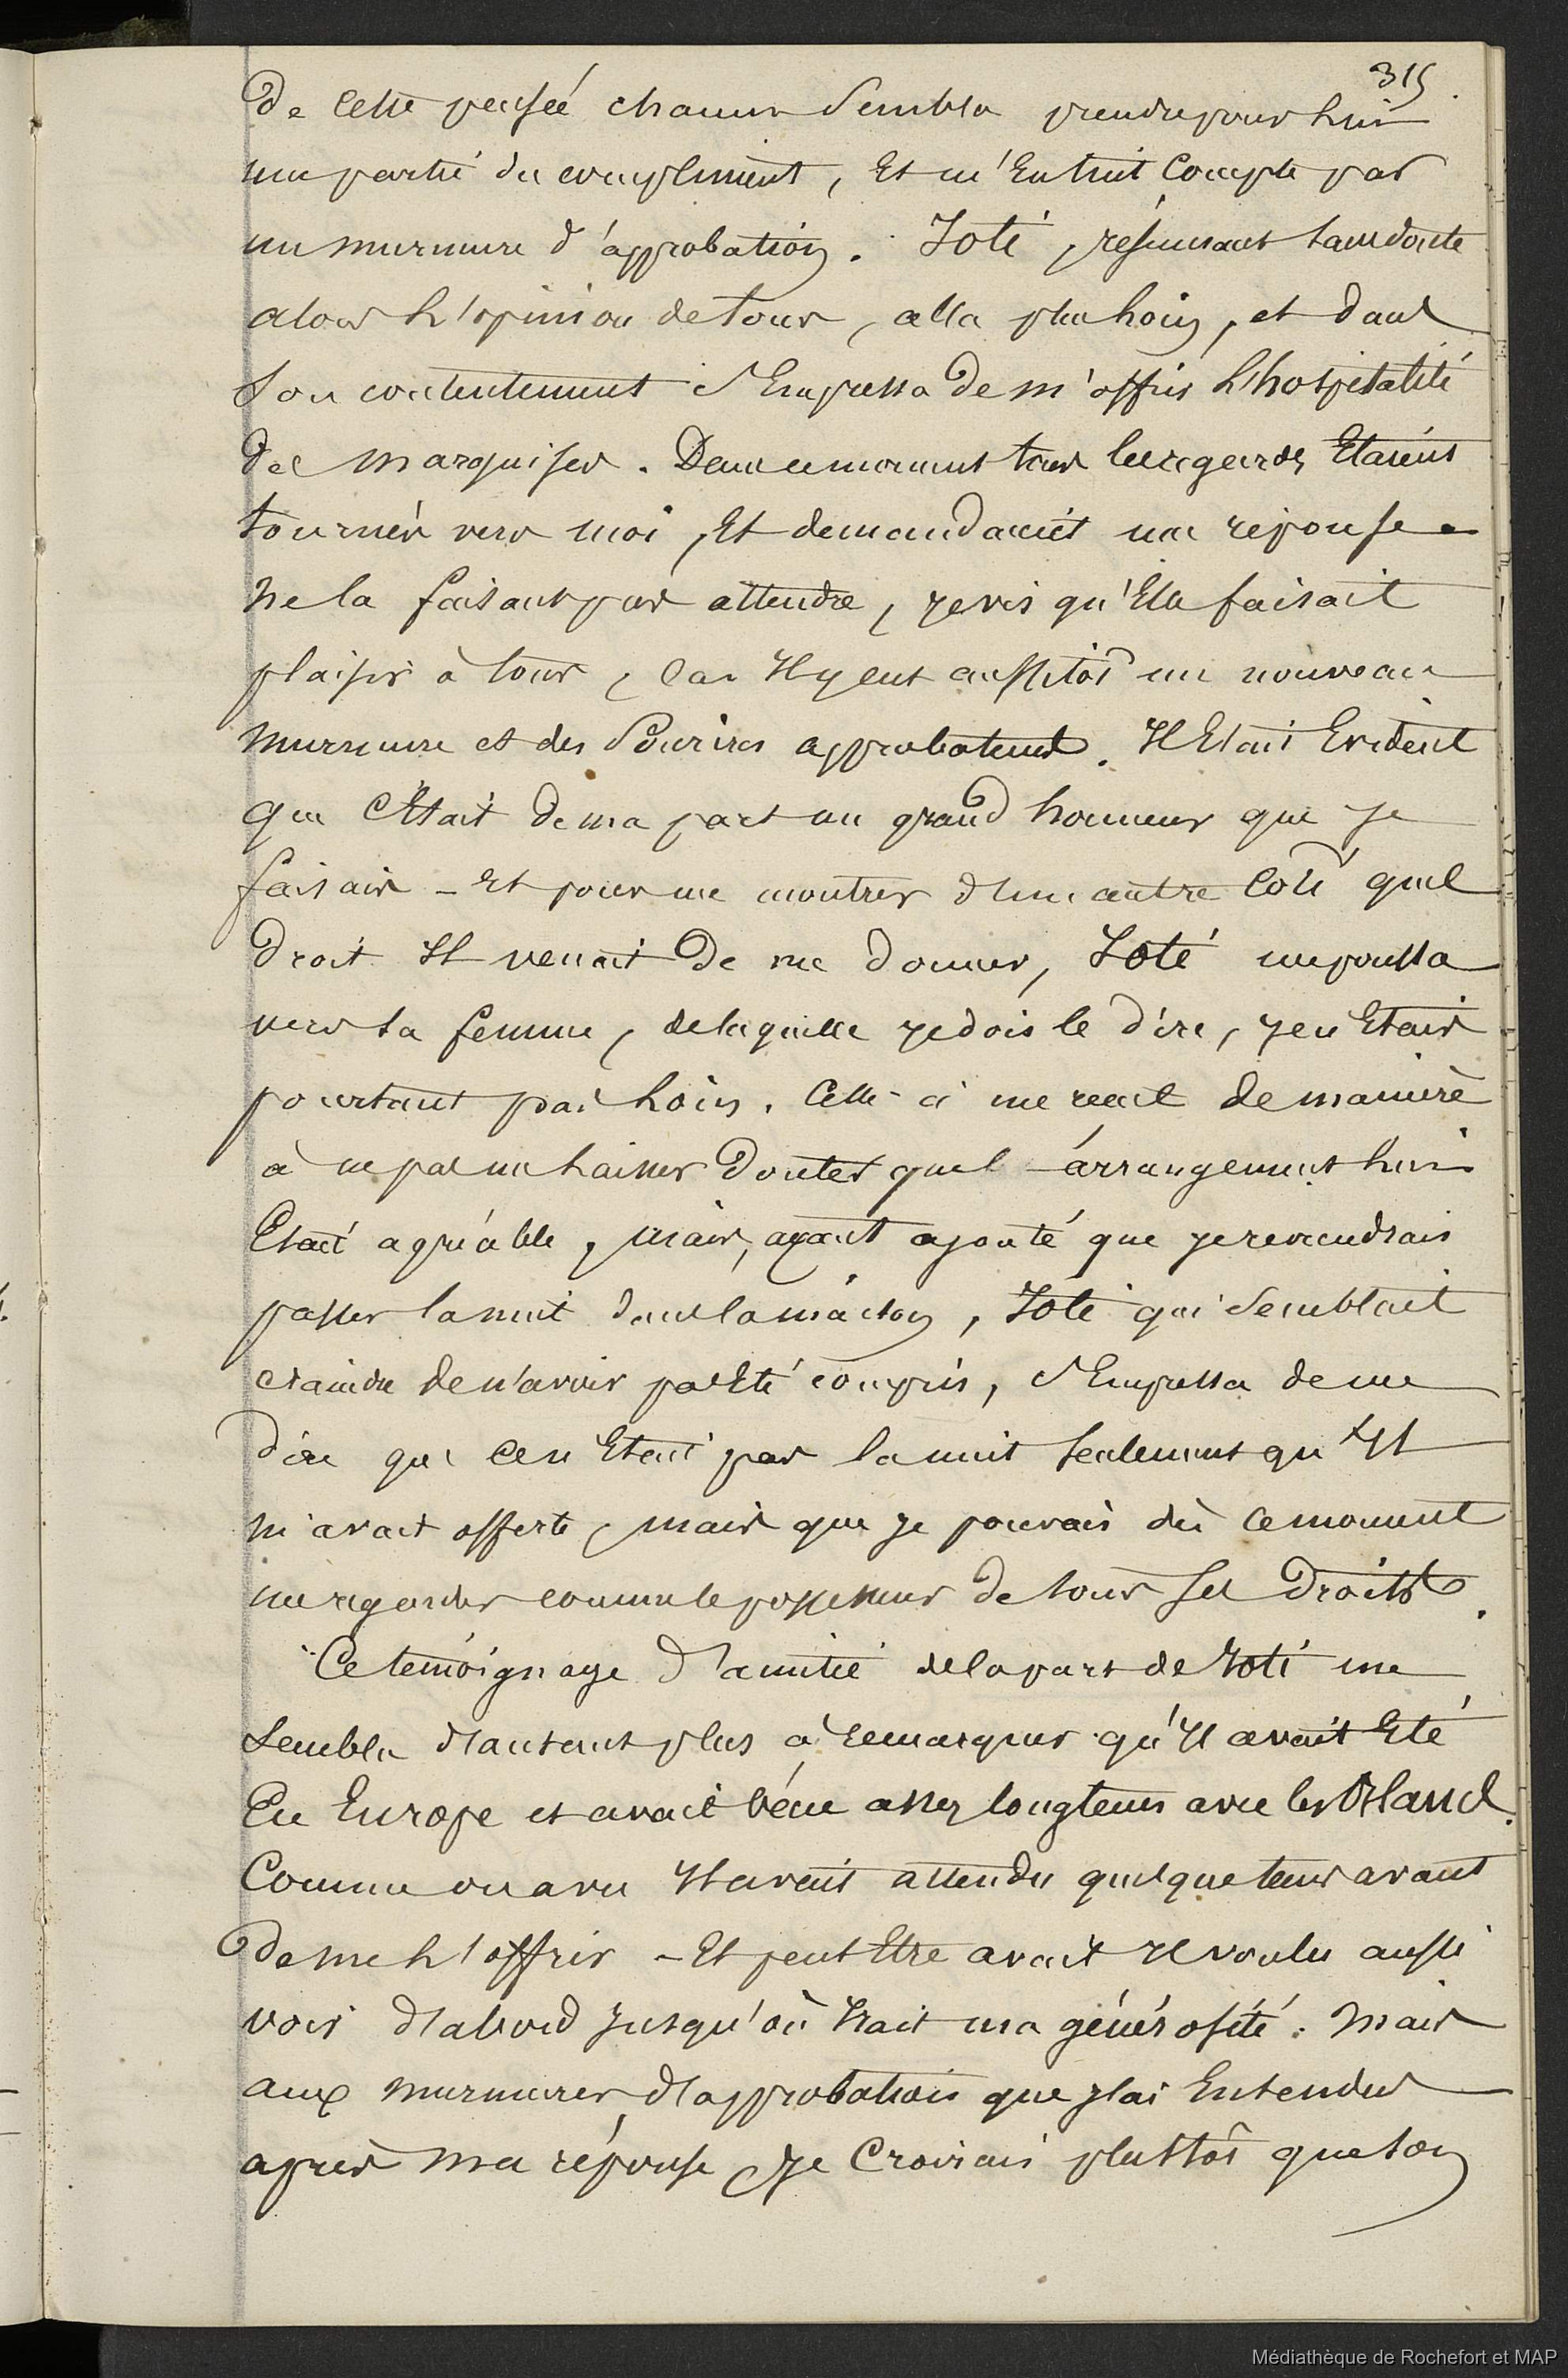 315.
de cette pensée chacun sembla prendre pour lui
une partie du compliment, Et m'En tint Compte par
un murmure d'approbation. Ioté, résumant sans doute
alors l'opinion de tous, alla plus loin, et dans
son contentement s'Empressa de m'offrir l'hospitalité
des marquises. Dans ce moment tous les regards Etaient
tournés vers moi, Et demandaient une réponse.
Ne la faisant pas attendre, je vis qu'Elle faisait
plaisir à tous, Car Il y eut aussitôt un nouveau
murmure et des Sourires approbateurs. Il Etait Evident
que C'Etait de ma part un grand honneur que je
faisais - Et pour me montrer d'un autre Côté quel
droit Il venait de me donner, Ioté me poussa
vers sa femme, de laquelle je dois le dire, j'en Etais
pourtant pas loin. Celle-ci me reçut de manière
à ne pas me laisser douter quel arrangement lui
Etait agréable, mais, ayant ajouté que je reviendrais
passer la nuit dans la maison, Ioté qui semblait
craindre de n'avoir pas Eté compris, s'Empressa de me
dire que ce n'Etait pas la nuit seulement qu'Il
m'avait offerte, mais que je pouvais dès ce moment
me regarder comme le possesseur de tous ses Droits.
Ce temoignage d'amitié de la part de Ioté me
sembla d'autant plus à remarquer qu'Il avait Eté
En Europe et avait vécu assez longtems avec les Blancs.
Comme on a vu Il avait attendu quelque tems avant
de me l'offrir - Et peut Etre avait Il voulu aussi
voir d'abord jusqu'où Irait ma générosité. mais
aux murmures d'approbations que j'ai Entendus
après ma réponse je Croirais pluttôt que son
Médiathèque de Rochefort et MAP